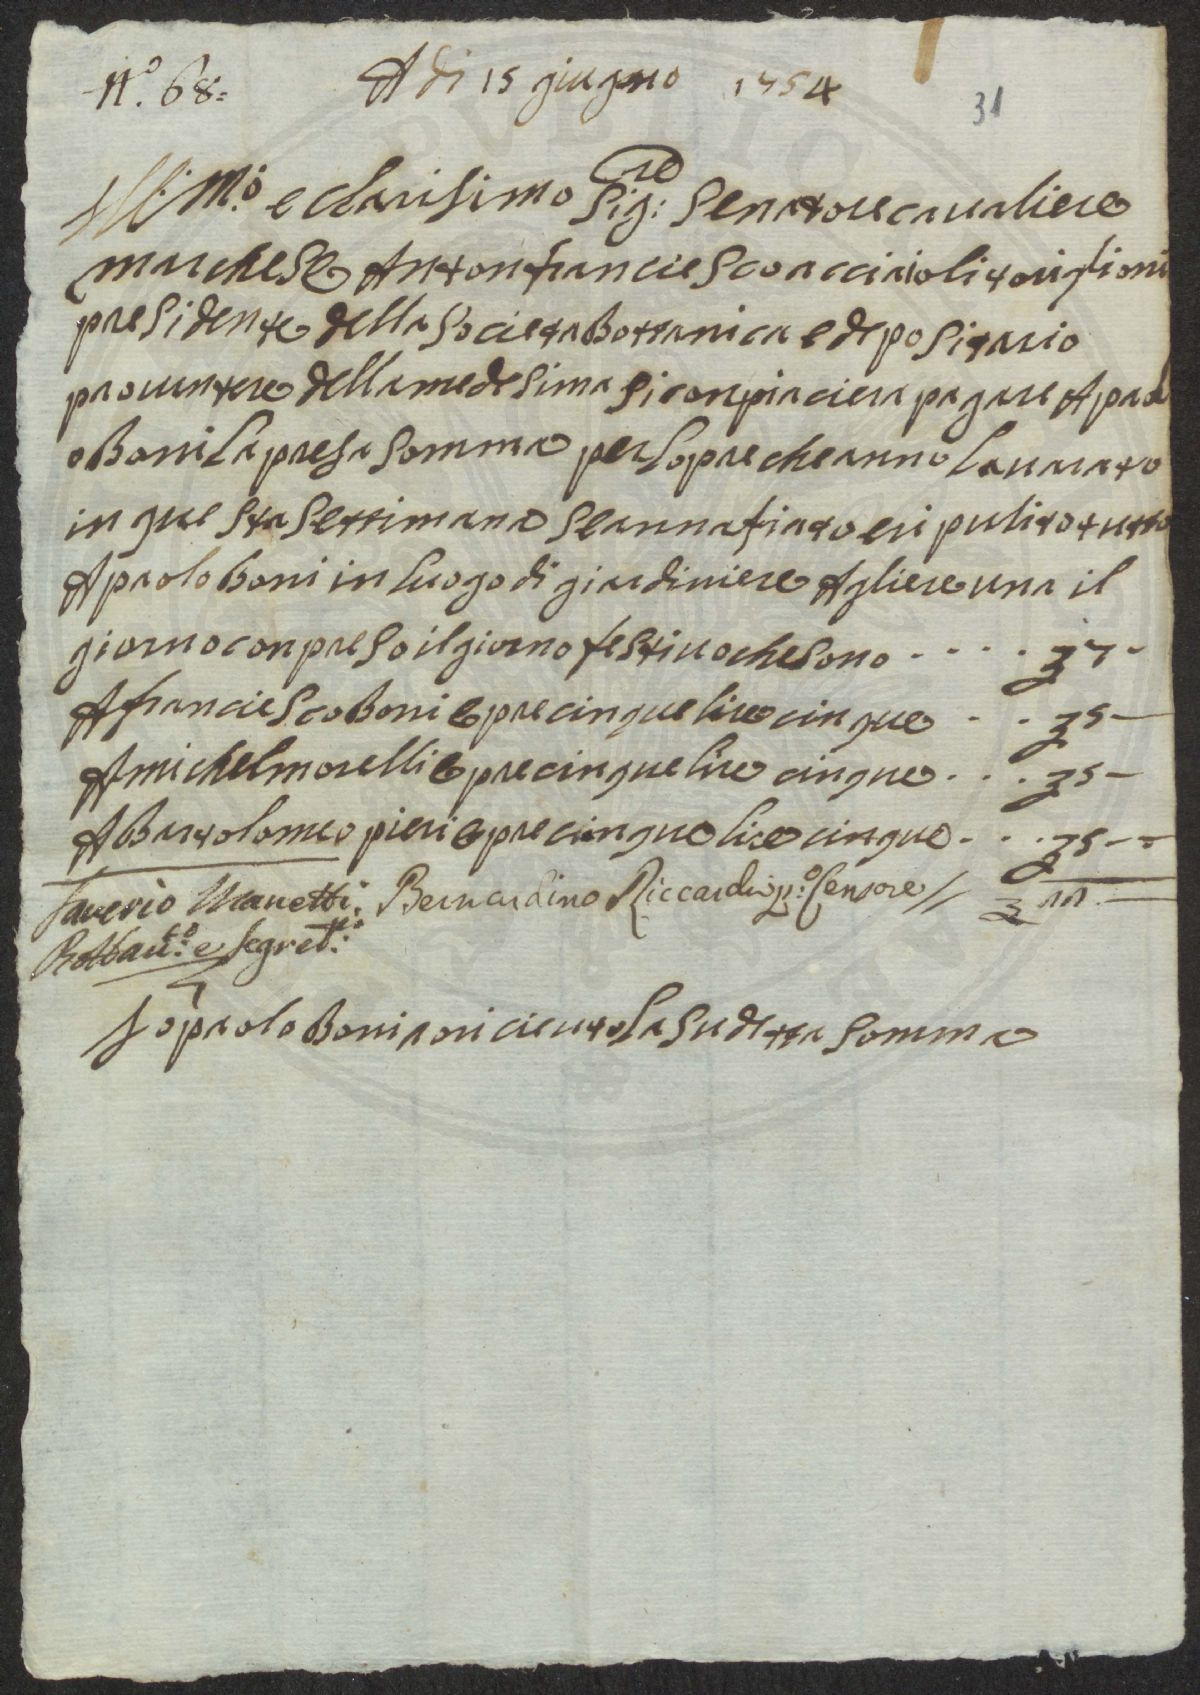 N.o 68: A di 15 giugno 1754
31
Ill:mo e clarisimo Sig:re Senatore cavaliere
marchese Antonfranciesco acciaioli toriglioni
presidente della Societa Bottanica e depositario
della medesima si conpiaciera pagare A paol
o Boni la presa somma per lopre che anno lavarato
in questa settimana se annafiato eri pulito tutto
A paolo boni in luogo di giardiniere A gliere una il
giorno conpreso il giorno festivo che sono - - - - ʒ 7 -
A franciesco Boni epre cinque lire cinque - - ʒ 5 —
A michel morelli epre cinque lire cinque - - - ʒ 5 —
A Bartolomeo pieri epre cinque lire cinque - - - ʒ 5 - -
Saverio Manetti: Bernardino Riccardi p:o Censore // ʒ 22 —
Bottan:co e Segret:rio
Io paolo Boni ao ricieuto la sudetta somma
PVBLIC